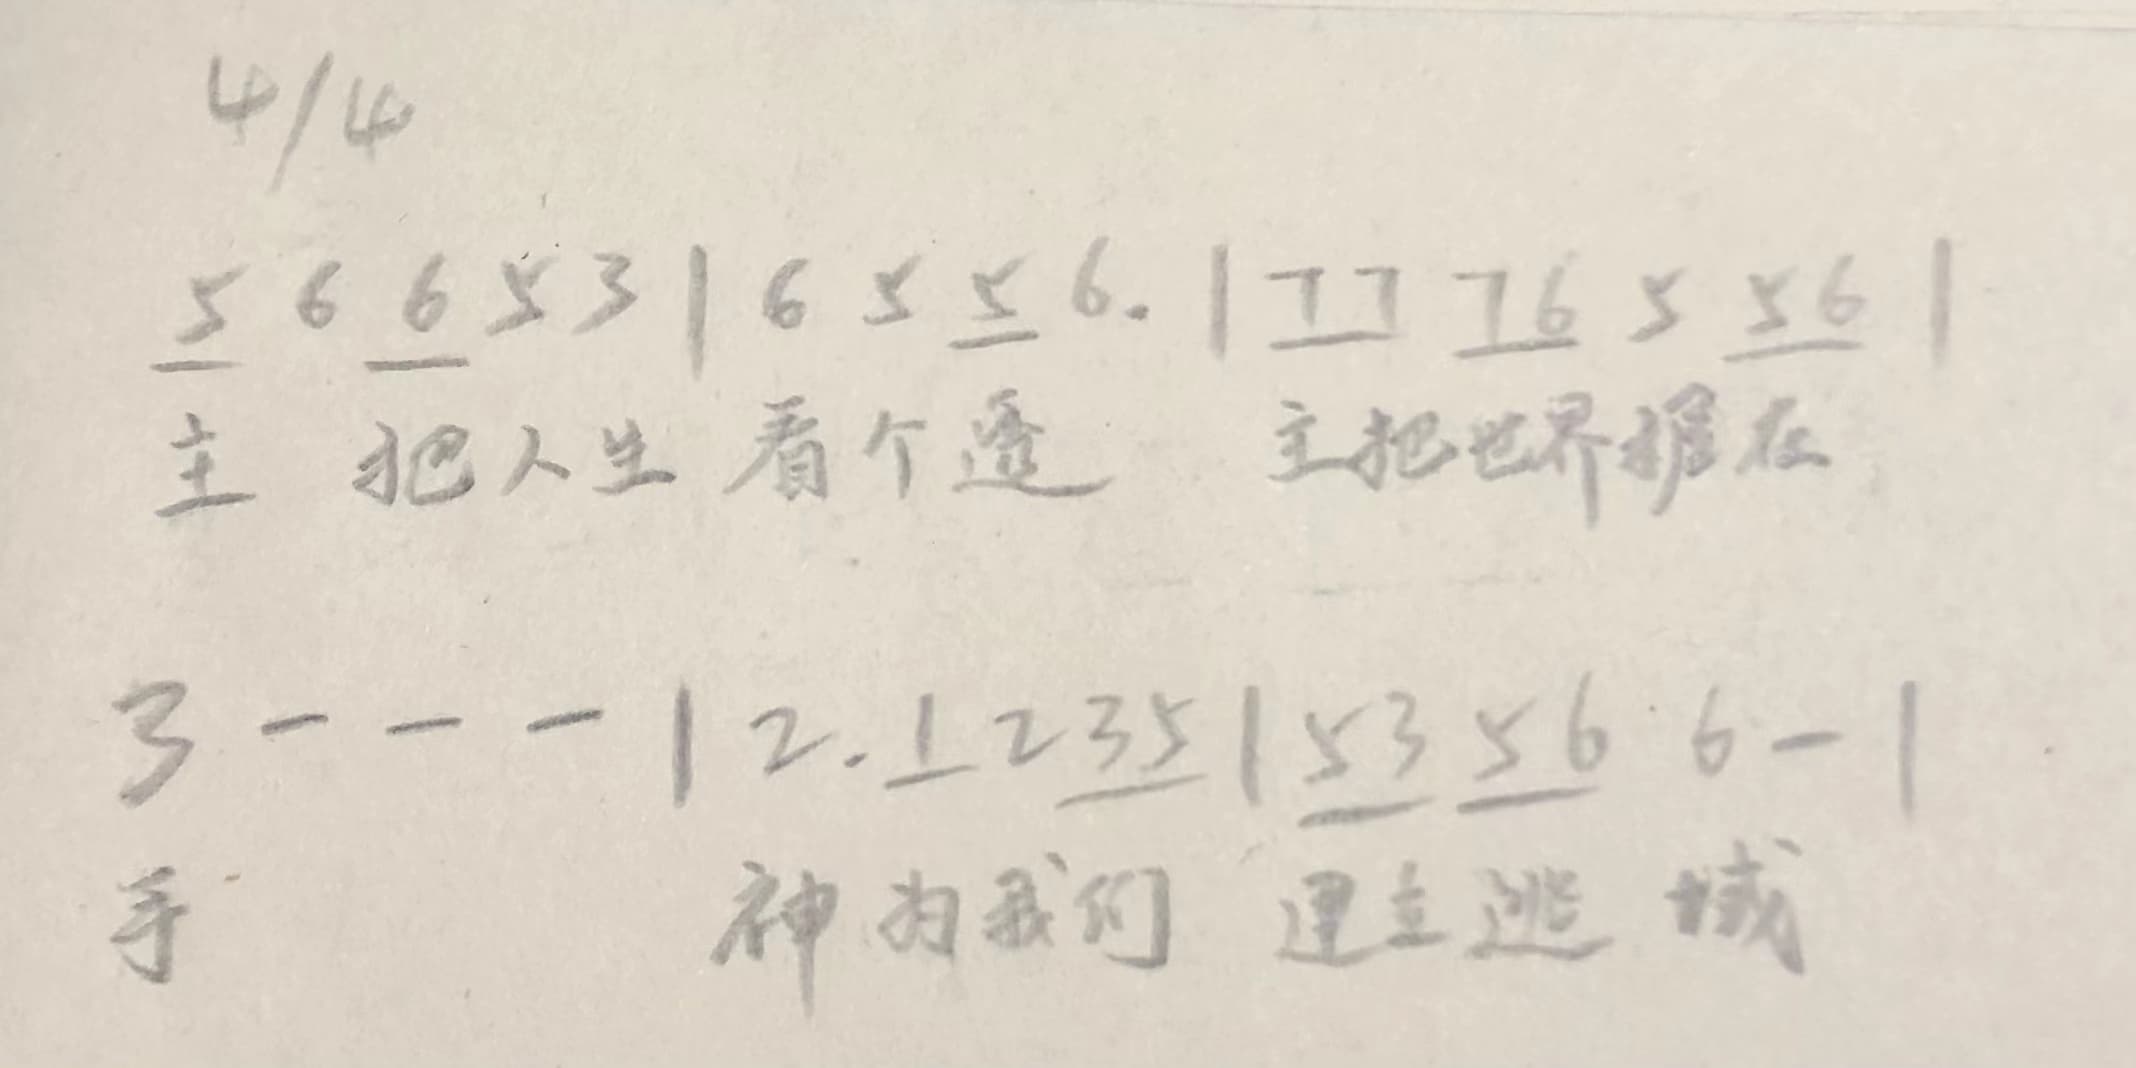 4/4
5 6 6 5 3 | 6 5 5 6. | 77 76 5 56 |
主 把人生 看个透 主把世界握在
3 - - - | 2. 1 2 35 | 53 56 6 - |
手 神为我们 建立逃 城